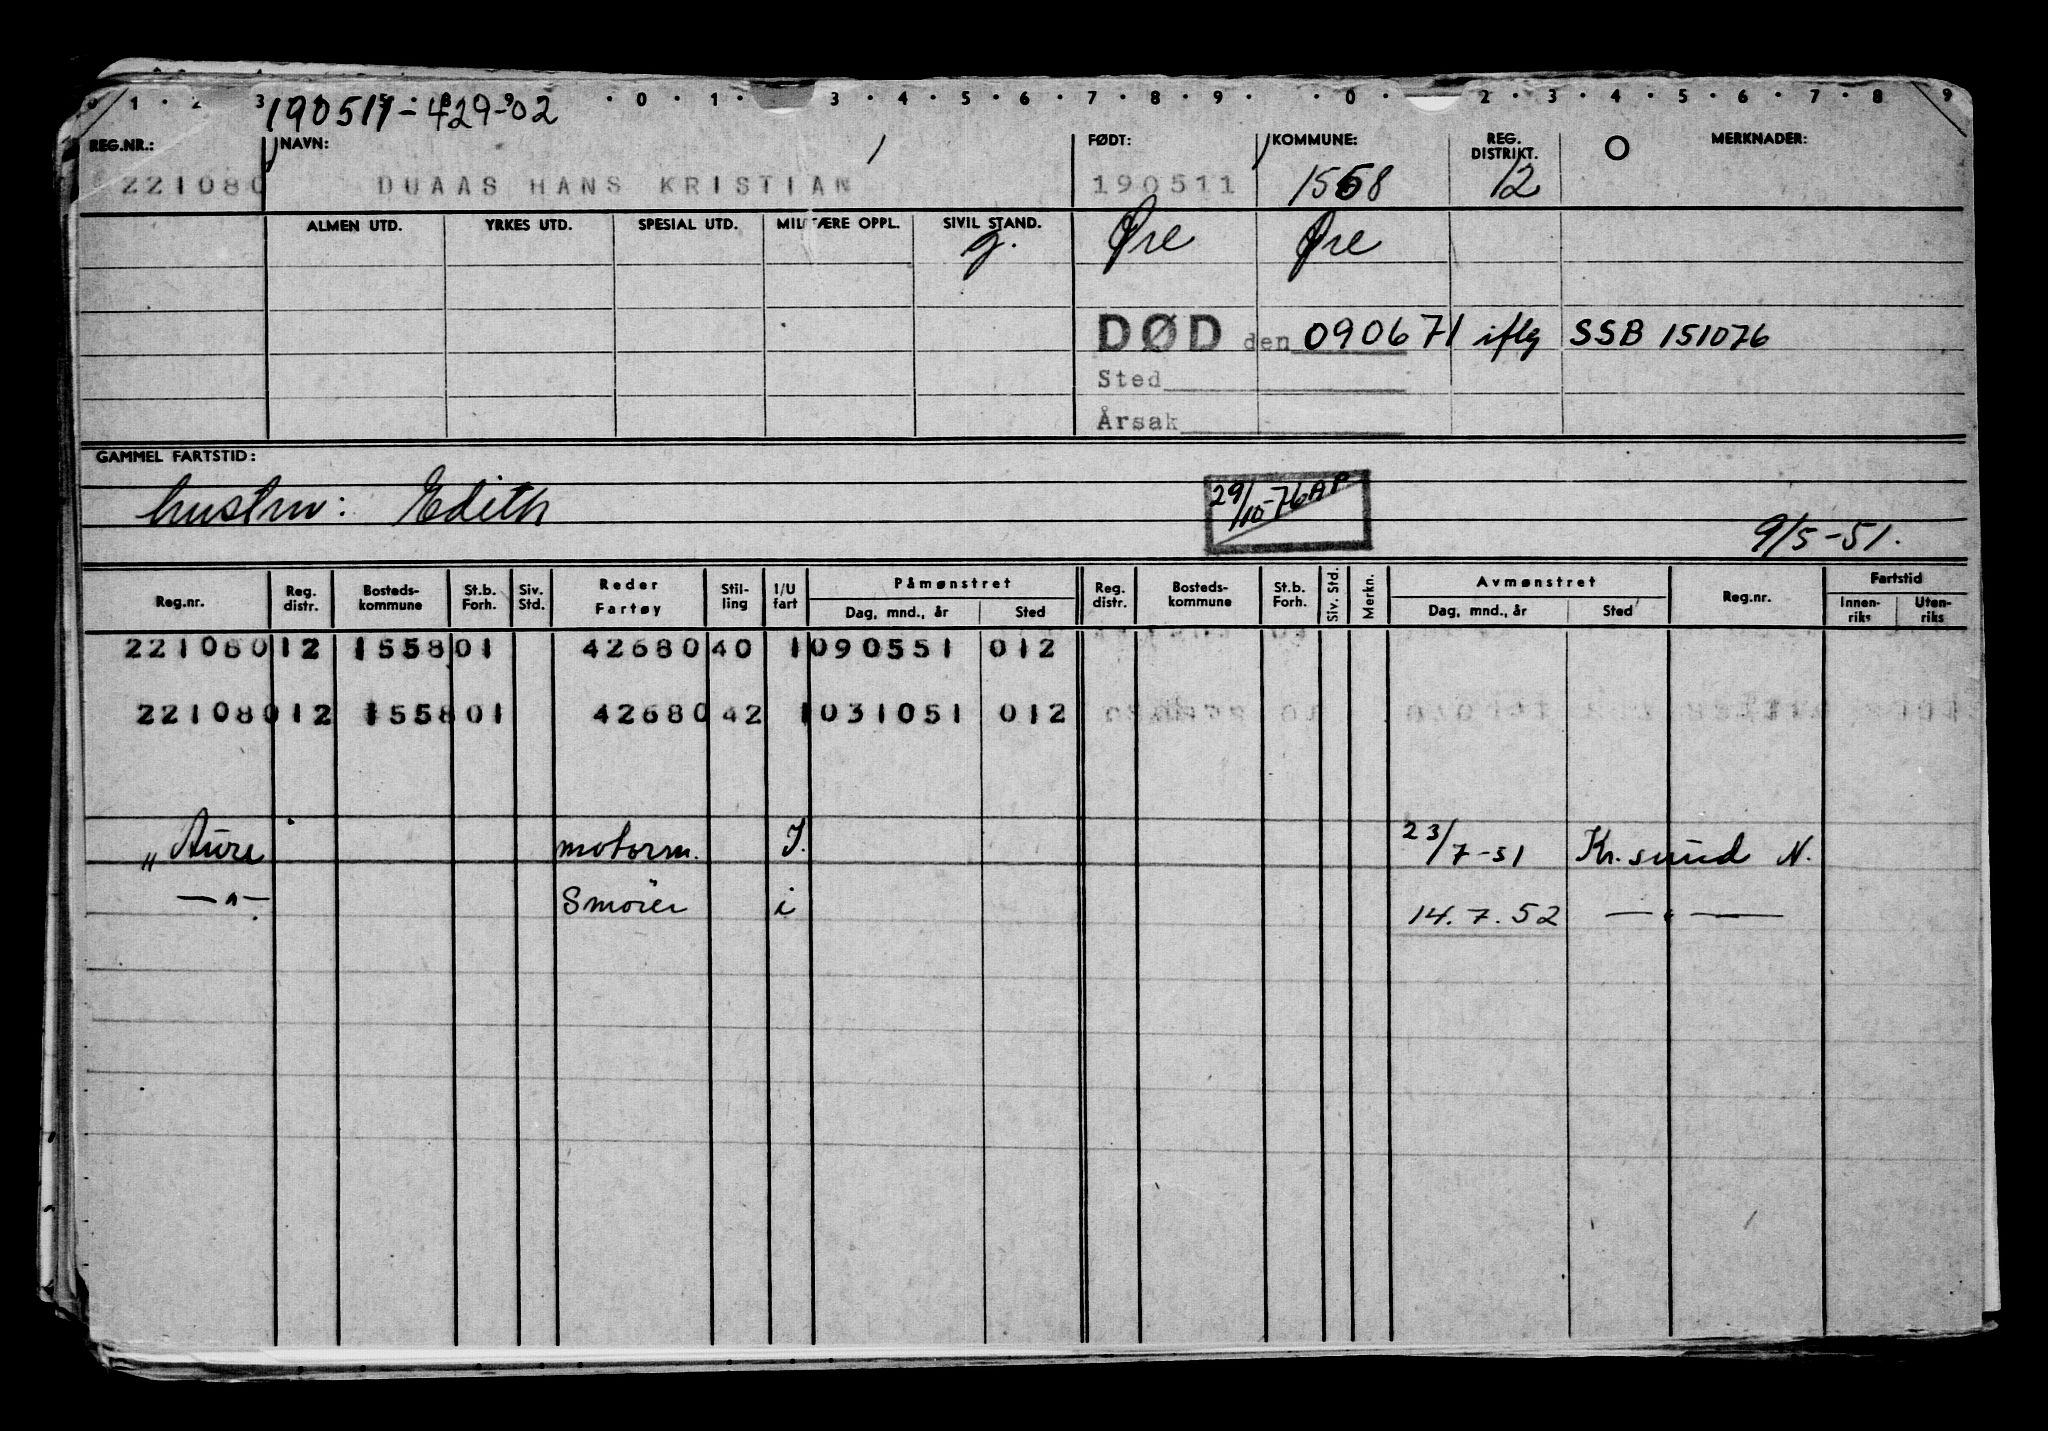 0 1 2 3 0 1 3 4 5 6 7 8 9 0 2 3 4 5 6 7 8 9
190511-429-02
REG.NR.: NAVN: FØDT: KOMMUNE: REG. DISTRIKT. O MERKNADER:
221080 DUAAS HANS KRISTIAN 190511 1558 12
ALMEN UTD. YRKES UTD. SPESIAL UTD. MILITÆRE OPPL. SIVIL STAND. Øre Øre
g.
DØD den 090671 iflg SSB 151076
Sted
Årsak
GAMMEL FARTSTID:
hustru: Edith 29/10-76 AP
9/5-51.
Reg.nr. Reg. distr. Bosteds-kommune St.b. Forh. Siv. Std. Reder Fartøy Stil-ling I/U fart Påmønstret Dag, mnd., år Sted Reg. distr. Bosteds-kommune St.b. Forh. Siv. Std. Merkn. Avmønstret Dag, mnd., år Sted Reg.nr. Fartstid Innen-riks Uten-riks
221080 12 1558 01 42680 40 1 090551 012
221080 12 1558 01 42680 42 1 031051 012
" Aure motorm. I. 23/7-51 Kr.sund N.
—"— Smører i 14.7.52 —"—